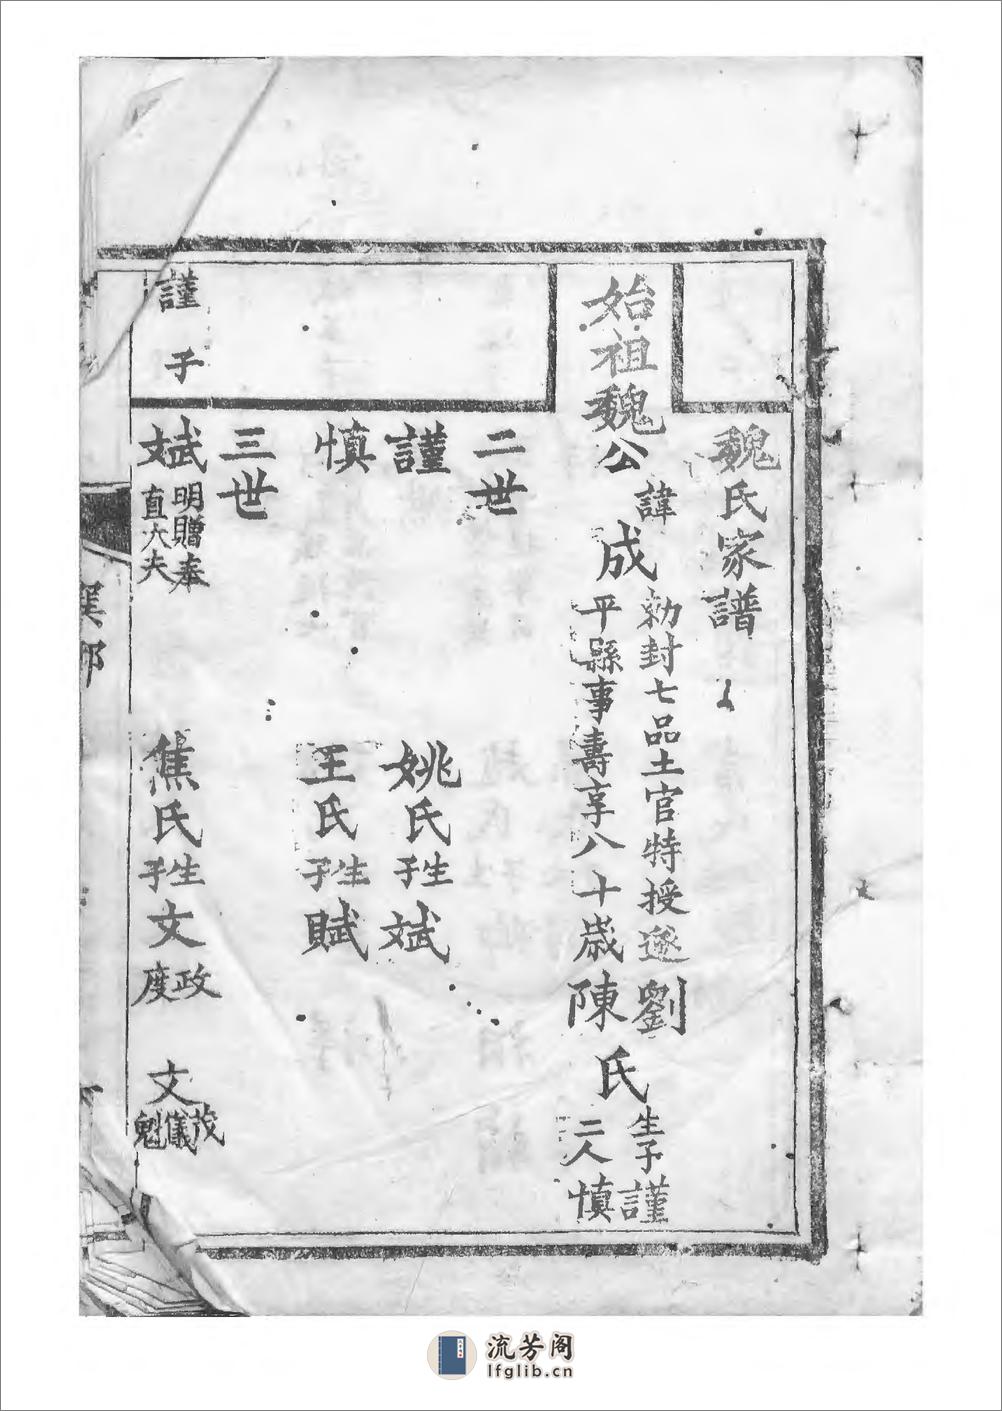 魏氏家譜
始祖魏公諱成
勅封七品土官特授遼
平縣事壽享八十歲
劉陳氏生子二人謹慎
二世
謹 姚氏生子斌
慎 王氏生子賦
三世
謹子
斌 明贈奉直大夫 焦氏生子文政度 文茂儀魁
流芳阁
lfglib.cn